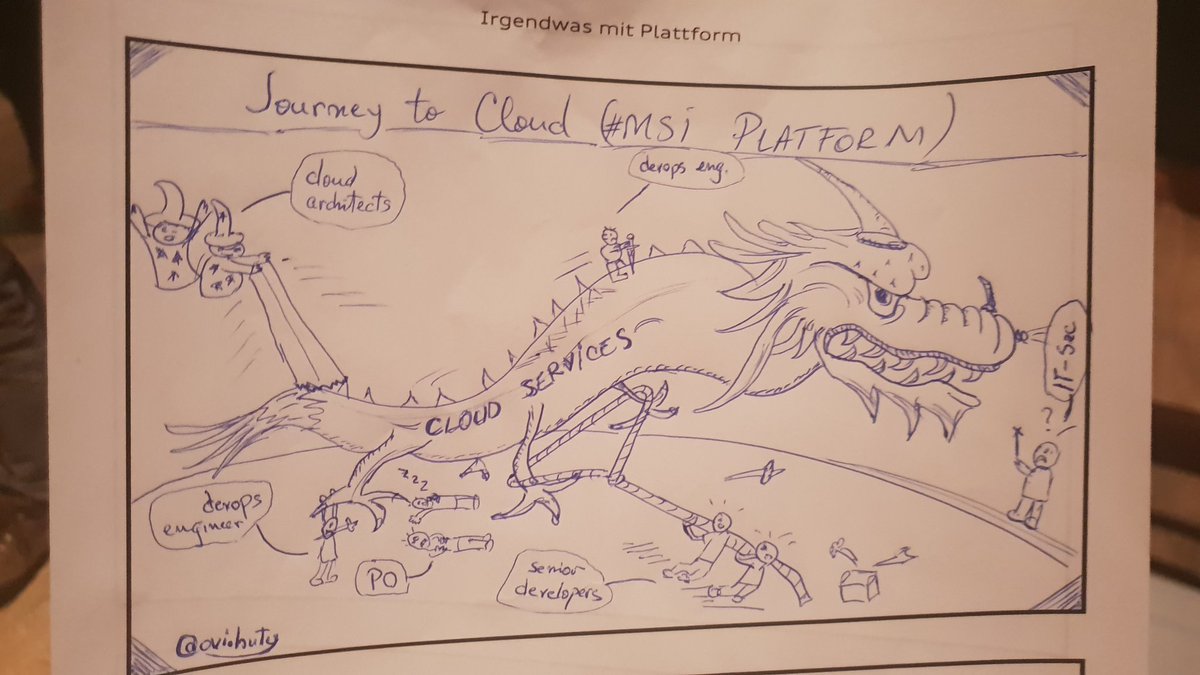 Irgendwas mit Plattform
Journey to Cloud (#MSi PLATFORM)
cloud
architects
devops eng.
IT-Sec
??
CLOUD SERVICES
zzz
devops
engineer
PO
senior
developers
@ovihuty